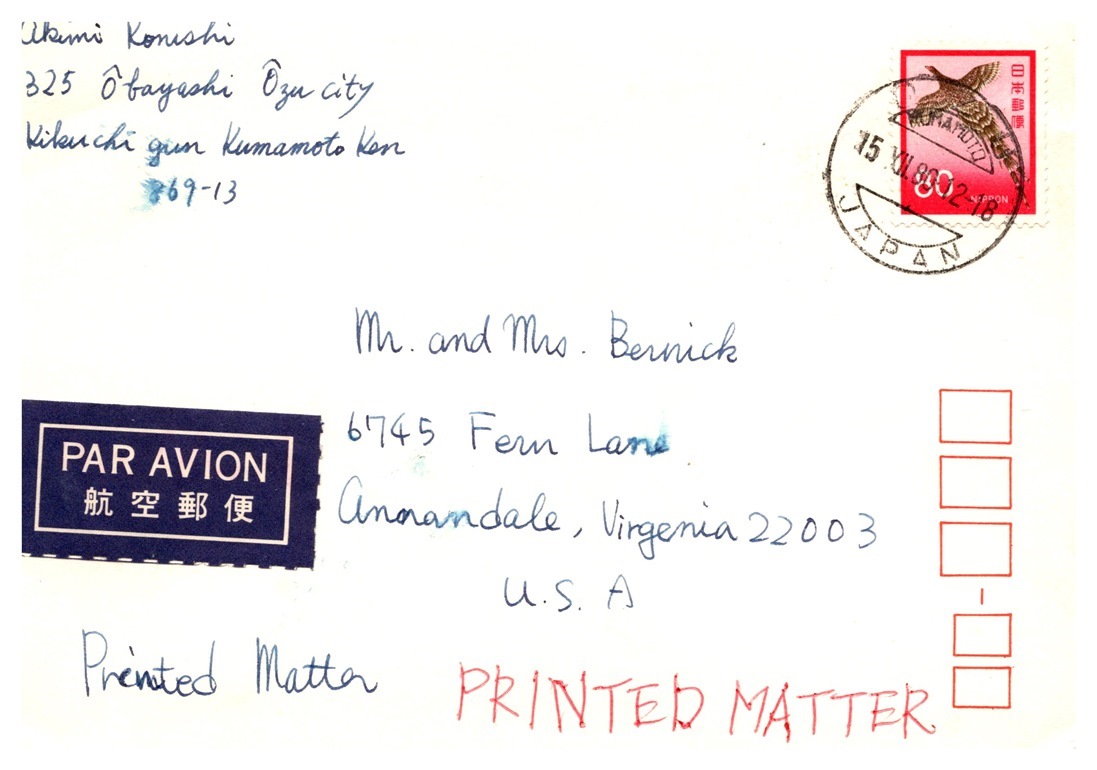 Akimi Konishi
325 Ôbayashi Ôzu city
Kikuchi gun Kumamoto Ken
869-13
日本郵便
80
NIPPON
KUMAMOTO
15 XII.80.12-18
JAPAN
Mr. and Mrs. Bernick
6745 Fern Lane
Annandale, Virgenia 22003
U.S. A
PAR AVION
航空郵便
Printed Matter
PRINTED MATTER